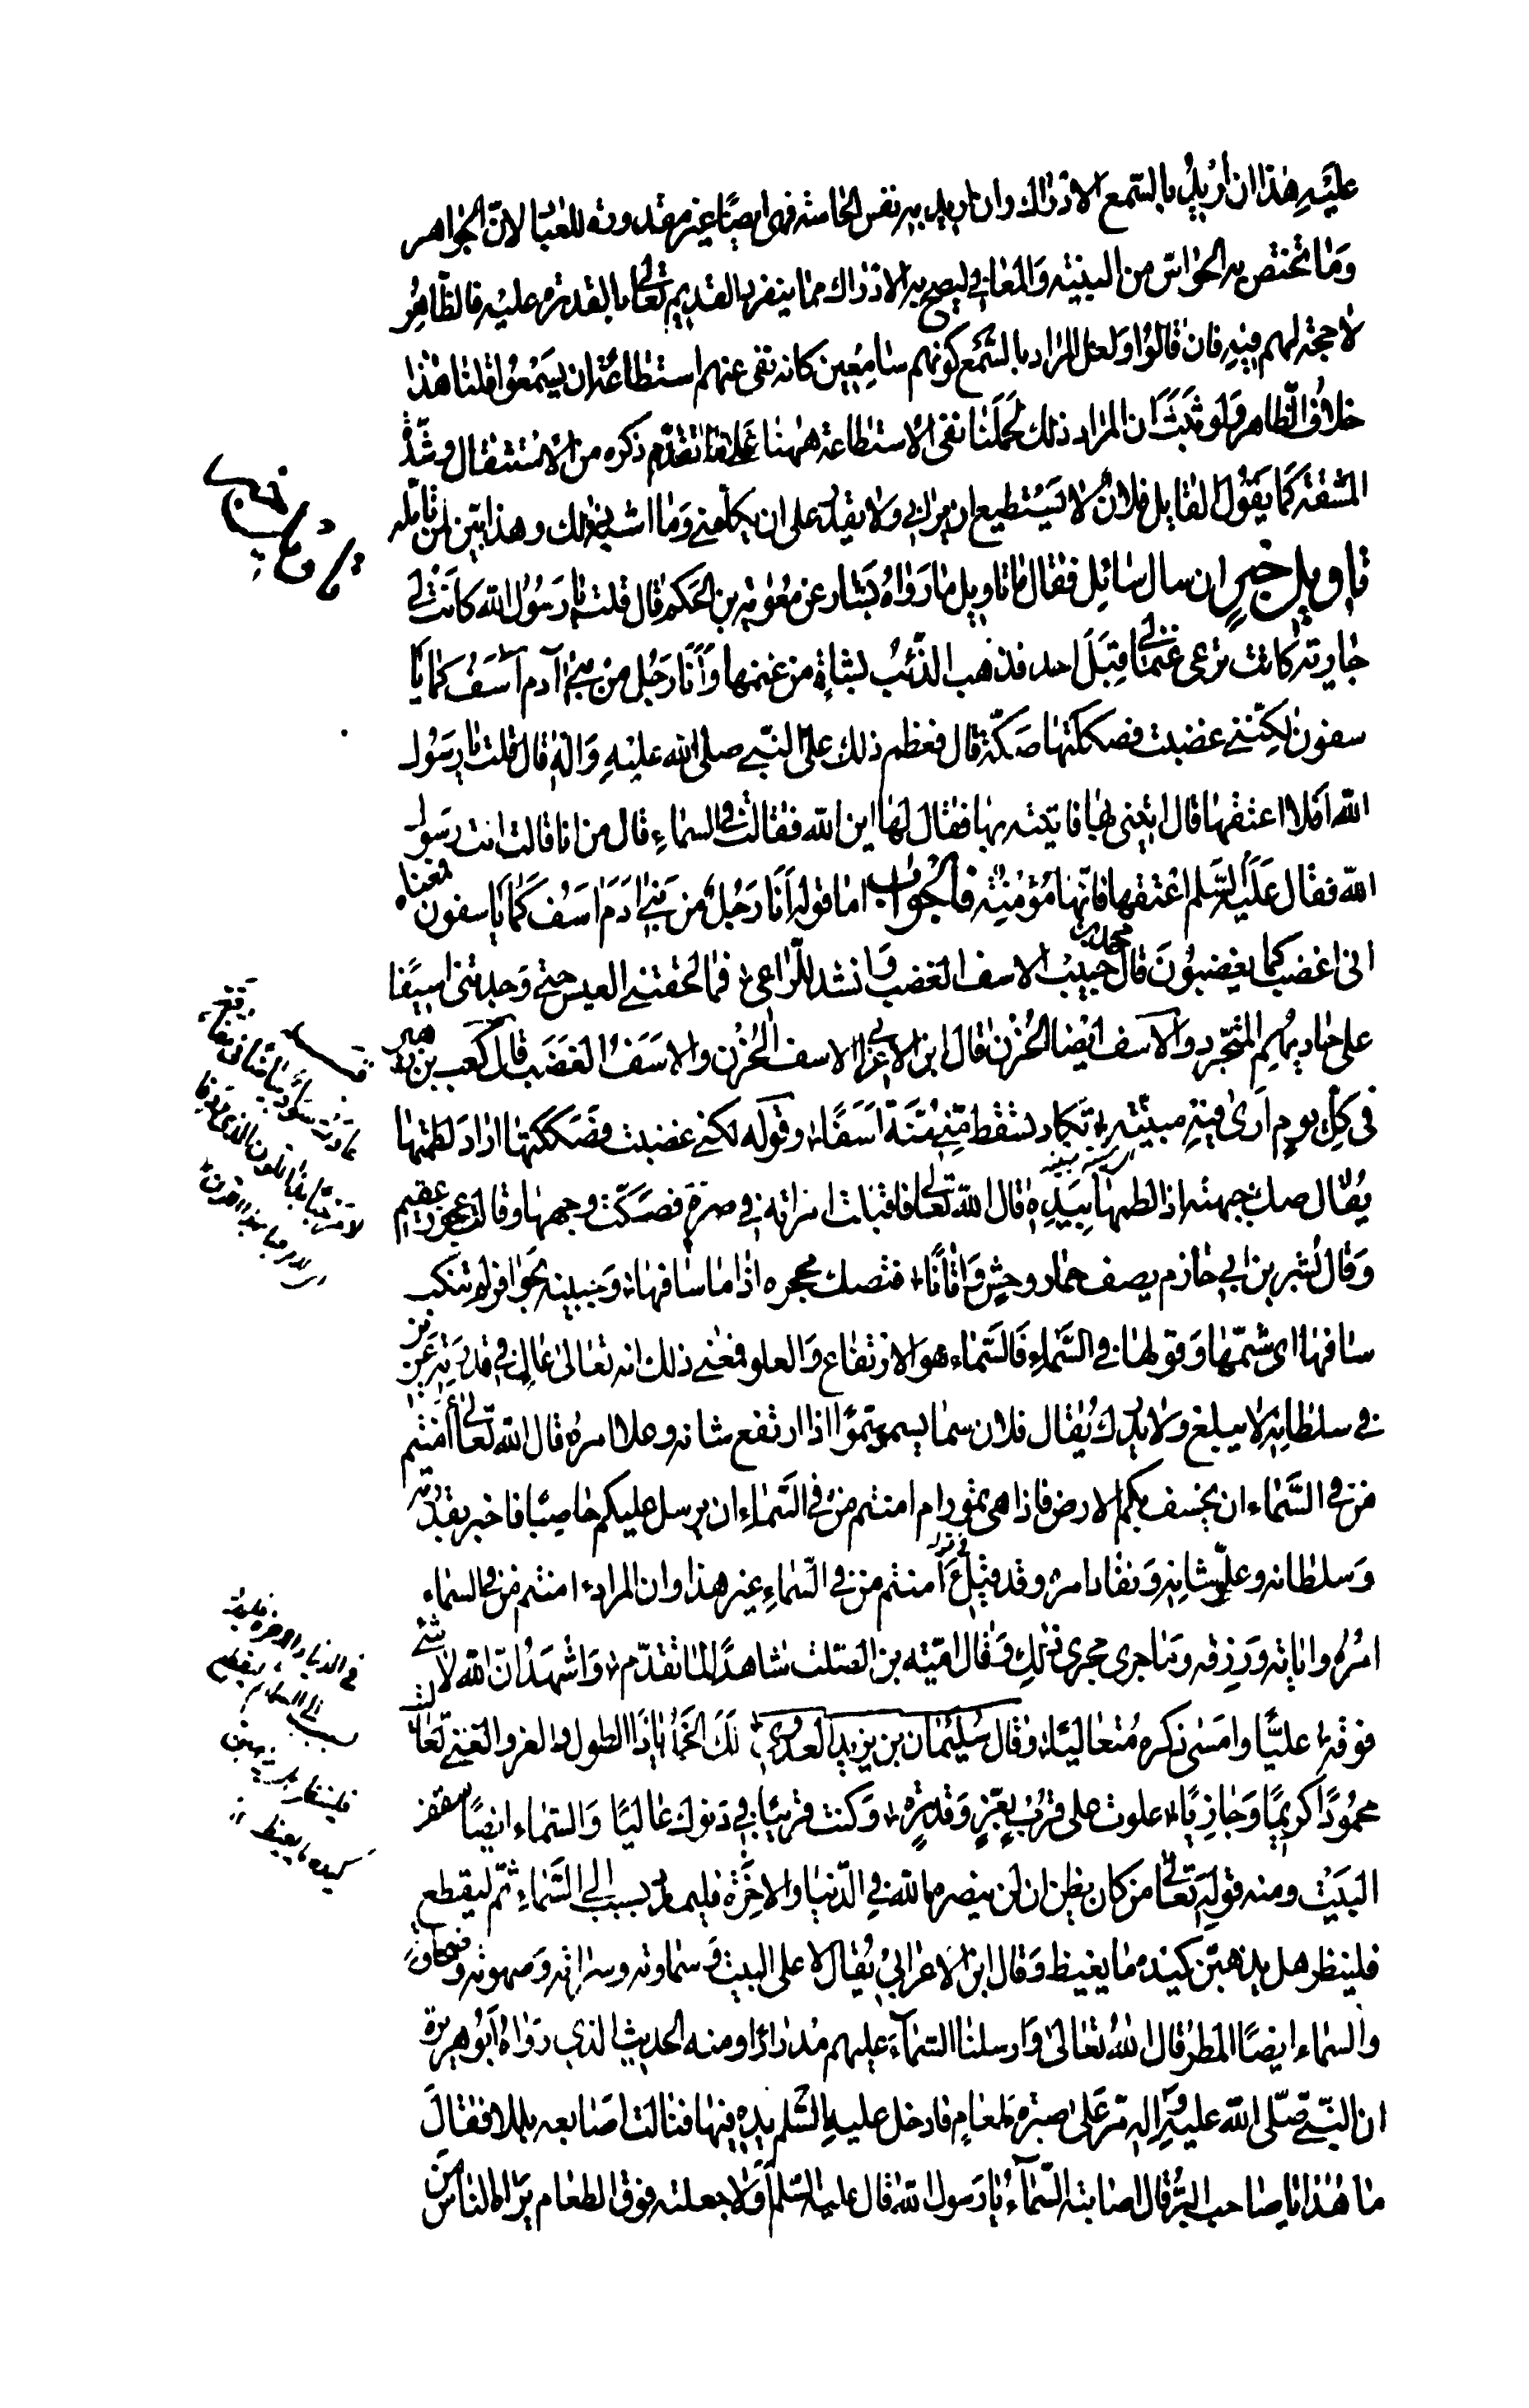 عليه هذا ان اريد بالسمع الادراك وان اريد به نفس الحاسة فهي ايضا غير مقدورة للعباد لان الجواهر
وما تختص به الحواس من البنية والمعاني ليصح به الادراك مما ينفرد القديم تعالى بالقدرة عليه فالظاهر
لا حجة لهم فيه فان قالوا ولعل المراد بالسمع كونهم سامعين كانه نفى عنهم استطاعة ان يسمعوا قلنا هذا
خلاف الظاهر ولو ثبت ان المراد ذلك لحملنا نفى الاستطاعة ههنا على ما تقدم ذكره من الاستثقال وشدة
المشقة كما يقول القايل فلان لا يستطيع ان يراني ولا يقدر على ان يكلمني وما اشبه ذلك وهذا بين لمن تامله
تاويل خبر ان سال سائل فقال ما تاويل ما رواه بشار عن معوية بن الحكم قال قلت يا رسول الله كانت لي
جارية كانت ترعى غنما لي قبل احد فذهب الذئب بشاة من غنمها وانا رجل من بني آدم آسف كما يا
سفون لكنني غضبت فصككتها صكة قال فعظم ذلك على النبي صلى الله عليه وآله قال قلت يا رسول
الله افلا اعتقها قال ايتني بها فاتيته بها فقال لها اين الله فقالت في السماء قال من انا قالت انت رسول
الله فقال عليه السلم اعتقها فانها مؤمنة فالجواب اما قوله انا رجل من بني ادم آسف كما ياسفون معناه
اني اغضب كما يغضبون قال محمد بن حبيب الاسف الغضب وانشد للراعي فما لحقتني العيس حتى وجدتني اسيفا
على حاديهم المتجرد والاسف ايضا الحزن قال ابن الاعرابي الاسف الحزن والاسف الغضب قال كعب بن زهير
في كل يوم ارى فيه مبينة تكاد تسقط مني منة اسفا وقوله لكني غضبت فصككتها اراد لطمتها
يقال صك جبهته اذا لطمها بيده قال الله تعالى فاقبلت امراته في صرة فصكت وجهها وقالت عجوز عقيم
وقال بشر بن ابي حازم يصف حمار وحش واتانا فتصك محجره اذا ما سافها وجبينه بحوافر لم تنكب
سافها اى شمها وقولها في السماء فالسماء هو الارتفاع والعلو فمعنى ذلك انه تعالى عال في قدرته عزيز
في سلطانه لا يبلغ ولا يدرك يقال فلان سما يسمو سموا اذا ارتفع شانه وعلا امره قال الله تعالى أامنتم
من في السماء ان يخسف بكم الارض فاذا هي تمور ام امنتم من في السماء ان يرسل عليكم حاصبا فاخبر بقدرته
وسلطانه وعلو شانه ونفاد امره وقد قيل في قوله أامنتم من في السماء غير هذا وان المراد أامنتم من في السماء
امره واياته ورزقه وما جرى مجرى ذلك وقال امية بن الصلت شاهدا لما تقدم واشهد ان الله لا شئ
فوقه عليا وامسى ذكره متعاليا وقال سليمان بن يزيد العدوي لك الحمد ياذا الطول والعز والغنى تعاليت
محمودا كريما وجازيا علوت على قرب بعز وقدرة وكنت قريبا في دنوك عاليا والسماء ايضا سقف
البيت ومنه قوله تعالى من كان يظن ان لن ينصره الله في الدنيا والاخرة فليمدد بسبب الى السماء ثم ليقطع
فلينظر هل يذهبن كيده ما يغيظ وقال ابن الاعرابي يقال لاعلى البيت سماوته وسراته وصهوته
والسماء ايضا المطر قال الله تعالى وارسلنا السماء عليهم مدرارا ومنه الحديث الذي رواه ابو هريرة
ان النبي صلى الله عليه وآله مر على صبرة طعام فادخل عليه السلم يده فيها فنالت اصابعه بللا فقال
ما هذا يا صاحب البر قال اصابته السماء يا رسول الله قال عليه السلم اولا جعلته فوق الطعام يراه الناس من
تاويل خبر
في الدنيا والاخرة فليمدد
بسبب الى السماء ثم ليقطع
فلينظر هل يذهبن
كيده ما يغيظ